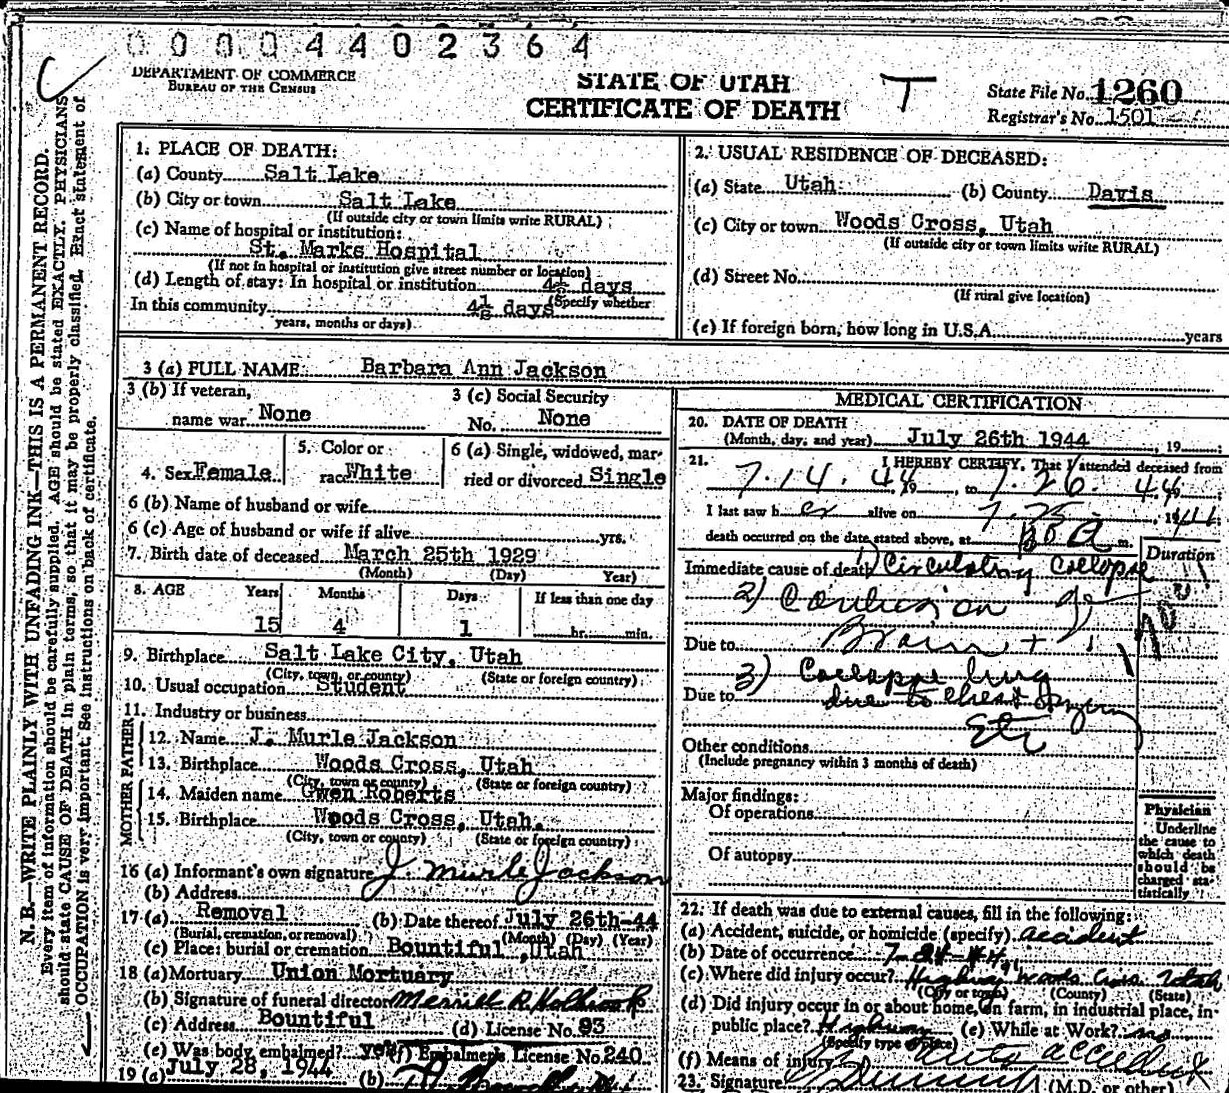 0 0 0 0 4 4 0 2 3 6 4
DEPARTMENT OF COMMERCE
BUREAU OF THE CENSUS
STATE OF UTAH
CERTIFICATE OF DEATH
T
State File No. 1260
Registrar's No. 1501
N. B.—WRITE PLAINLY WITH UNFADING INK—THIS IS A PERMANENT RECORD.
Every item of information should be carefully supplied. AGE should be stated EXACTLY. PHYSICIANS
should state CAUSE OF DEATH in plain terms, so that it may be properly classified. Exact statement of
OCCUPATION is very important. See instructions on back of certificate.
1. PLACE OF DEATH:
(a) County Salt Lake
(b) City or town Salt Lake
(If outside city or town limits write RURAL)
(c) Name of hospital or institution:
St. Marks Hospital
(If not in hospital or institution give street number or location)
(d) Length of stay: In hospital or institution 4½ days
(Specify whether
In this community 4½ days
years, months or days)
2. USUAL RESIDENCE OF DECEASED:
(a) State Utah (b) County Davis
(c) City or town Woods Cross, Utah
(If outside city or town limits write RURAL)
(d) Street No.
(If rural give location)
(e) If foreign born, how long in U.S.A. years
3 (a) FULL NAME Barbara Ann Jackson
3 (b) If veteran,
name war None
3 (c) Social Security
No. None
4. Sex Female
5. Color or
race White
6 (a) Single, widowed, mar-
ried or divorced Single
6 (b) Name of husband or wife
6 (c) Age of husband or wife if alive yrs.
7. Birth date of deceased March 25th 1929
(Month) (Day) Year)
8. AGE Years Months Days If less than one day
15 4 1 hr. min.
9. Birthplace Salt Lake City, Utah
(City, town, or county) (State or foreign country)
10. Usual occupation Student
11. Industry or business
FATHER
12. Name J. Murle Jackson
13. Birthplace Woods Cross, Utah
(City, town or county) (State or foreign country)
MOTHER
14. Maiden name Gwen Roberts
15. Birthplace Woods Cross, Utah.
(City, town or county) (State or foreign country)
16 (a) Informant's own signature J. Murle Jackson
(b) Address
17 (a) Removal (b) Date thereof July 26th-44
(Burial, cremation, or removal) (Month) (Day) (Year)
(c) Place: burial or cremation Bountiful ,Utah
18 (a) Mortuary Union Mortuary
(b) Signature of funeral director Merrill R. Holbrook
(c) Address Bountiful (d) License No. 93
(e) Was body embalmed? yes (f) Embalmer's License No. 240
19 (a) July 28, 1944 (b)
MEDICAL CERTIFICATION
20. DATE OF DEATH
(Month, day, and year) July 26th 1944 , 19
21. I HEREBY CERTIFY, That I attended deceased from
7. 14. 44 19 , to 7. 26. 44 19
I last saw h er alive on 7. 25 , 1944
death occurred on the date stated above, at m.
Duration
Immediate cause of death 1) Circulatory Collapse
2) Contusion of
Due to Brain +
3) Collapse lung
Due to due to chest injury
Etc
Other conditions
(Include pregnancy within 3 months of death)
Major findings:
Of operations
Of autopsy
Physician
Underline
the cause to
which death
should be
charged sta-
tistically
22. If death was due to external causes, fill in the following:
(a) Accident, suicide, or homicide (specify) accident
(b) Date of occurrence
(c) Where did injury occur? Highway Woods Cross Utah
(City or town) (County) (State)
(d) Did injury occur in or about home, on farm, in industrial place, in
public place? Highway (e) While at Work? no
(Specify type of place)
(f) Means of injury auto accident
23. Signature (M.D. or other)